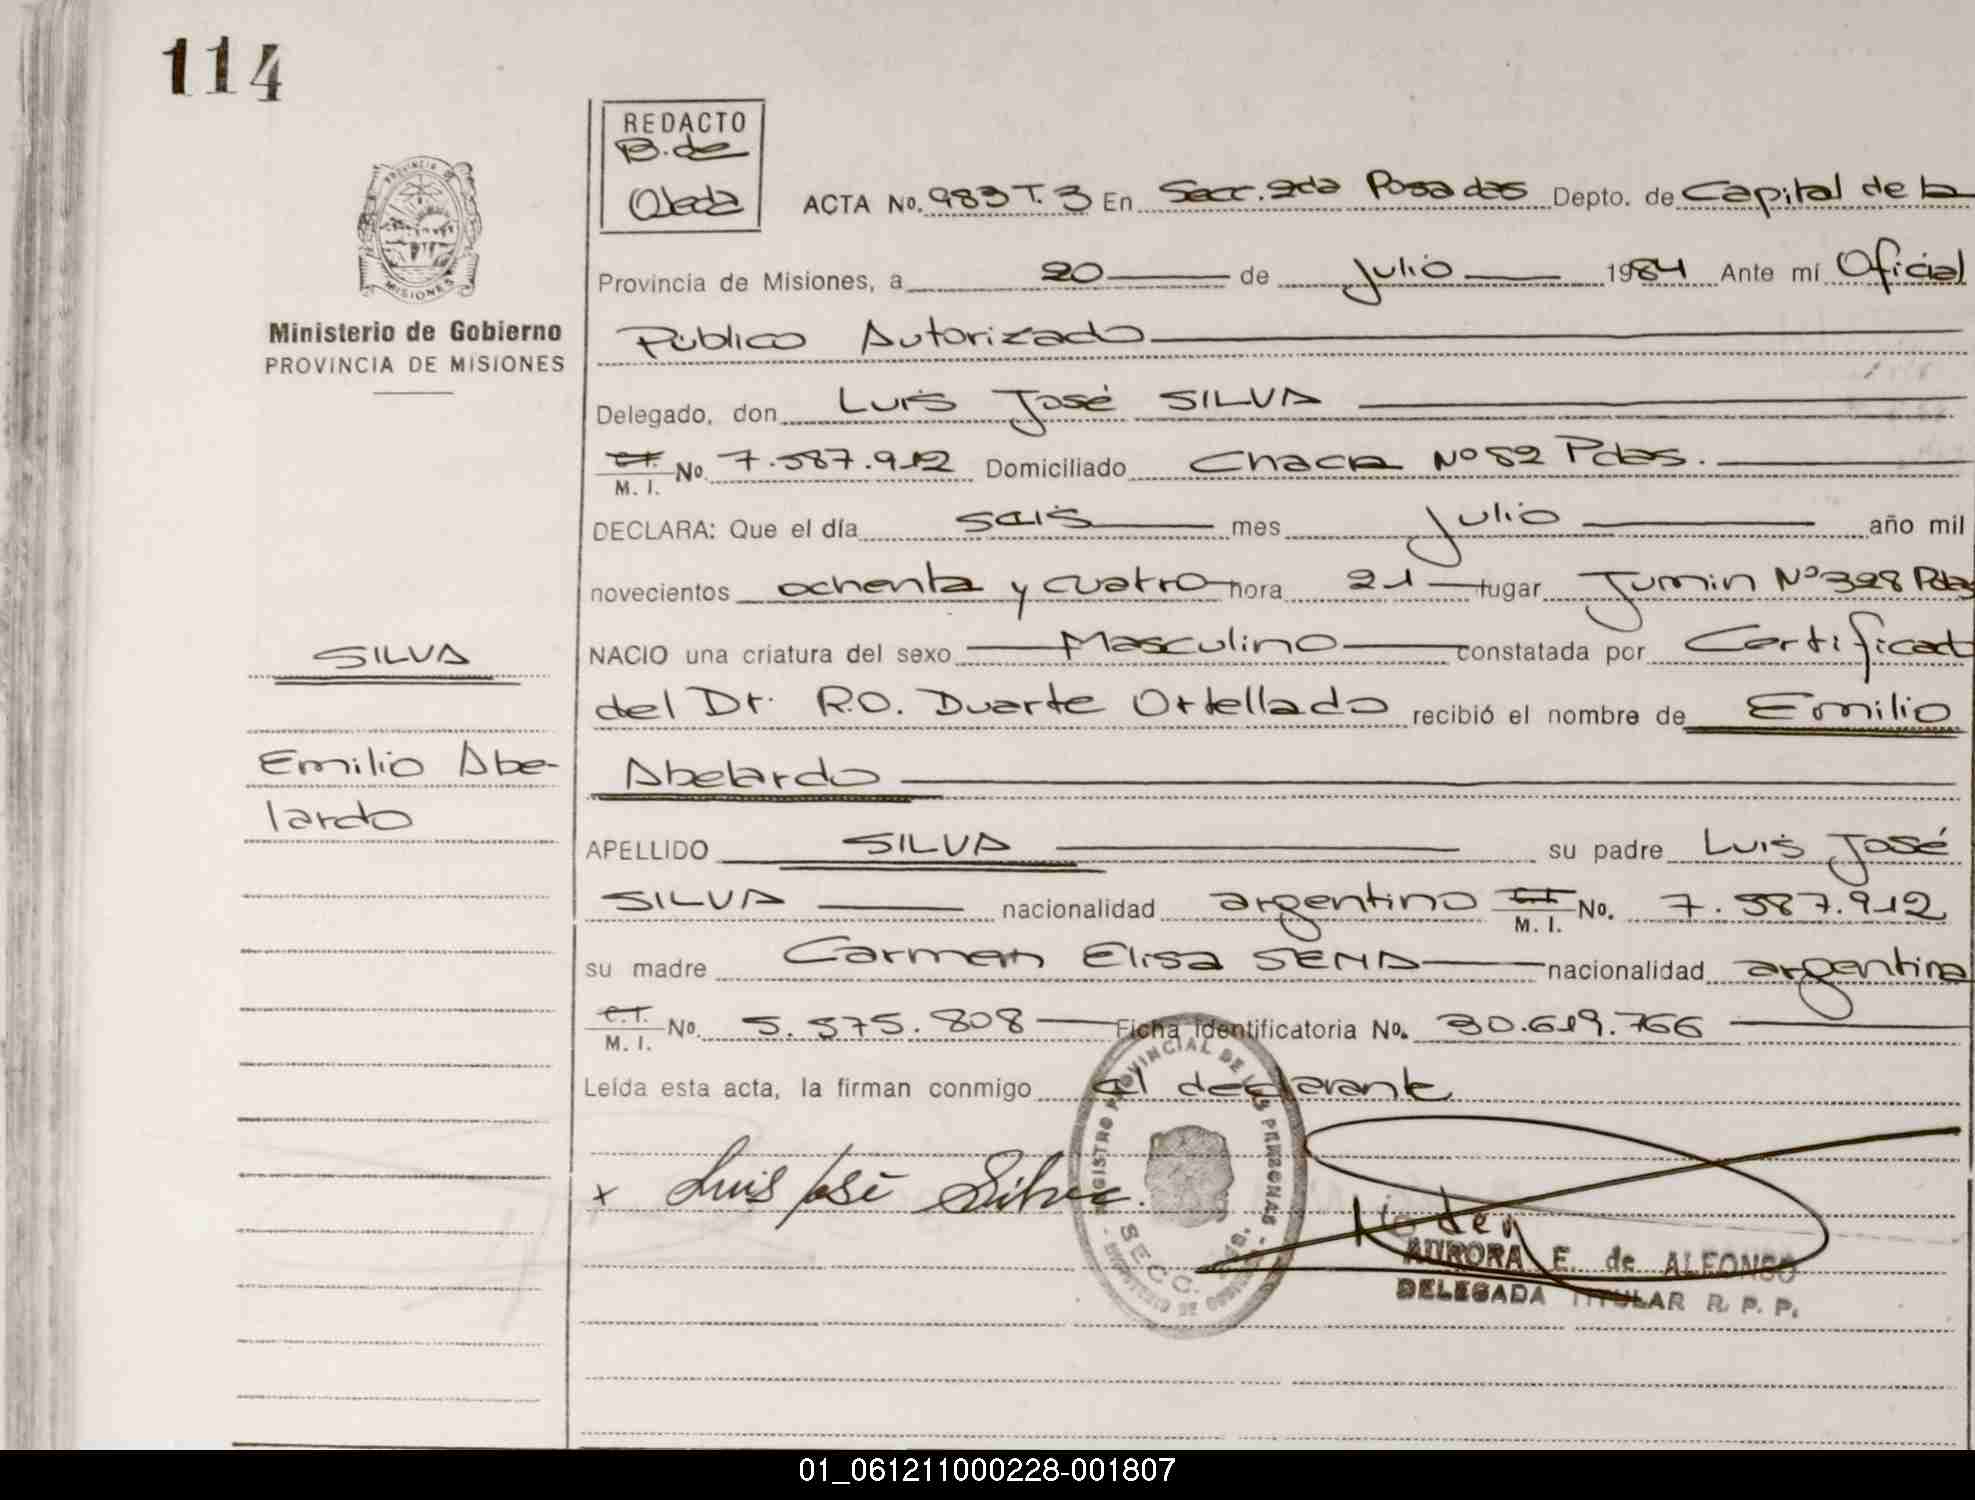 114
REDACTO
B. de
Ojeda
ACTA No. 983 T. 3 En Secc. 2da Posadas Depto. de Capital de la
Provincia de Misiones, a 20 de Julio 1984 Ante mí Oficial
Público Autorizado
Delegado, don Luis José SILVA
C.I. M. I. No. 7.587.912 Domiciliado Chacra Nº 82 Pdas.
DECLARA: Que el día seis mes Julio año mil
novecientos ochenta y cuatro hora 21 lugar Junin Nº 328 Pdas
NACIO una criatura del sexo Masculino constatada por Certificad
del Dr. R.O. Duarte Ortellado recibió el nombre de Emilio
Abelardo
APELLIDO SILVA su padre Luis José
SILVA nacionalidad argentino C.I. M. I. No. 7.587.912
su madre Carmen Elisa SENA nacionalidad argentina
C.I. M. I. No. 5.575.808 Ficha identificatoria No. 30.619.766
Leída esta acta, la firman conmigo el declarante
x Luis José Silva
AURORA E. de ALFONSO
DELEGADA TITULAR R. P. P.
REGISTRO PROVINCIAL DE LAS PERSONAS
SECC. 2da.
MINISTERIO DE GOBIERNO
PROVINCIA DE
MISIONES
Ministerio de Gobierno
PROVINCIA DE MISIONES
SILVA
Emilio Abe-
lardo
01_061211000228-001807